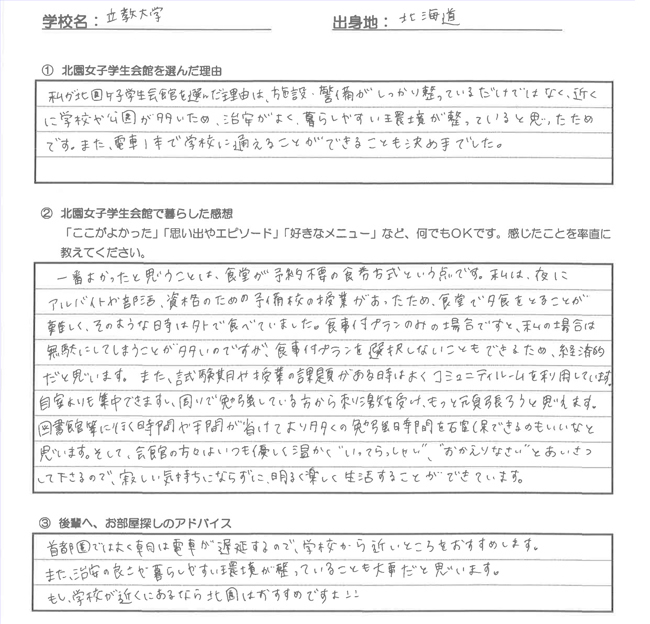 学校名：立教大学　出身地：北海道
① 北園女子学生会館を選んだ理由
私が北園女子学生会館を選んだ理由は、施設・警備がしっかり整っているだけではなく、近く
に学校や公園が多いため、治安がよく、暮らしやすい環境が整っていると思ったため
です。また、電車1本で学校に通えることができることも決め手でした。
② 北園女子学生会館で暮らした感想
「ここがよかった」「思い出やエピソード」「好きなメニュー」など、何でもOKです。感じたことを率直に
教えてください。
一番よかったと思うことは、食堂が予約不要の食券方式という点です。私は、夜に
アルバイトや部活、資格のための予備校の授業があったため、食堂で夕食をとることが
難しく、そのような日時は外で食べていました。食事付プランのみの場合ですと、私の場合は
無駄にしてしまうことが多いのですが、食事付プランを選択しないこともできるため、経済的
だと思います。また、試験期間や授業の課題がある時はよくコミュニティルームを利用しています。
自室よりも集中できますし、周りで勉強している方から刺激を受け、もっと頑張ろうと思えます。
図書館等に行く時間や手間が省けてより多くの勉強時間を確保できるのもいいなと
思います。そして、会館の方々はいつも優しく温かく"いってらっしゃい"、"おかえりなさい"とあいさつ
して下さるので、寂しい気持ちにならずに、明るく楽しく生活することができています。
③ 後輩へ、お部屋探しのアドバイス
首都圏ではよく朝は電車が遅延するので、学校から近いところをおすすめします。
また、治安の良さや暮らしやすい環境が整っていることも大事だと思います。
もし、学校が近くにあるなら北園はおすすめですよ!!